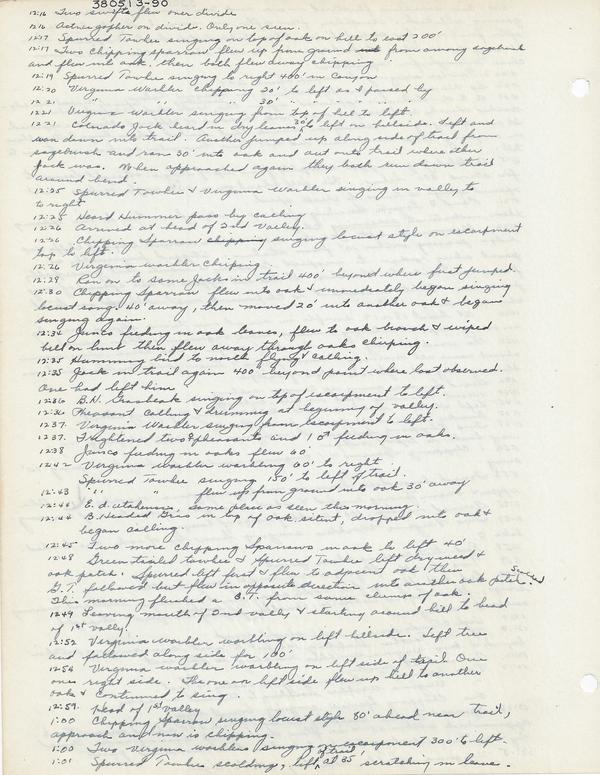 380513-90
12:16 Two swifts flew over divide
12:16 gopher on divide. Only one seen.
12:17 Spurred Towhee singing on top of oak on hill to east 200'
12:17 Two Chipping sparrow flew up from ground from among sagebrush
and flew into oak, then both flew away chipping
12:19 Spurred Towhee singing to right 400' in canyon
12:20 Virginia Warbler chipping 20' to left as I passed by
12:21 " " " 30' " " " " "
12:21 Virginia Warbler singing from top of hill to left.
12:21 Colorado Jack heard in dry leaves 20' to left on hillside. Left and
ran down into trail. Another jumped up along side of trail from
sagebrush and ran 30' into oak and out onto trail where other
Jack was. When approached again they both run down trail
around bend.
12:25 Spurred Towhee & Virginia Warbler singing in valley to
to right
12:25 Heard Hummer pass by calling
12:26 Arrived at head of 2nd Valley.
12:26 Chipping Sparrow chipping singing locust style on escarpment
top to left.
12:26 Virginia warbler chirping.
12:29 Ran on to same Jacks in trail 400' beyond where first jumped.
12:30 Chipping Sparrow flew into oak & immediately began singing
locust song. 40' away, then moved 20' into another oak & began
singing again.
12:34 Junco feeding in oak flew to oak branch & wiped
bill on limb then flew away through oaks chirping.
12:35 Humming bird to north flying & calling.
12:35 Jack in trail again 400' beyond point where last observed.
One had left him
12:36 B.H. Grosbeak singing on top of escarpment to left.
12:36 Pheasant calling & drumming at beginning of valley.
12:37 Virginia Warbler singing from escarpment to left.
12:37 Frightened two ♀ pheasants and 1♂ feeding in oaks.
12:38 Junco feeding in oaks flew 60'
12:42 Virginia warbler warbling 60' to right
Spurred Towhee singing 150' to left of trail.
12:43 " " flew up from ground into oak 30' away
12:44 E. d. utahensis, same place as seen this morning.
12:44 B. Headed Gros in top of oak silent, dropped into oak &
began calling.
12:45 Two more Chipping Sparrows in oak to left 40'
12:48 Green tailed towhee & Spurred Towhee left dry weed &
oak patch. Spurred left first & flew to adjacent oak then
G.T. followed but flew in opposite direction into another oak patch.
This morning flushed a G.T. from same clump of oak.
12:49 Leaving mouth of 2nd valley & starting around hill to head
of 1st valley.
12:52 Virginia warbler warbling on left hillside. Left tree
and followed along side for 100'
12:54 Virginia warbler warbling on left side of trail. One
on right side. The one on left side flew up hill to another
oak & continued to sing.
12:59. Head of 1st valley
1:00 Chipping Sparrow singing locust style 80' ahead near trail,
approach and now is chipping.
1:00 Two Virginia warblers singing escarpment 300' to left.
1:01 Spurred Towhee scolding, left of trail, at 35' scratching in leaves.